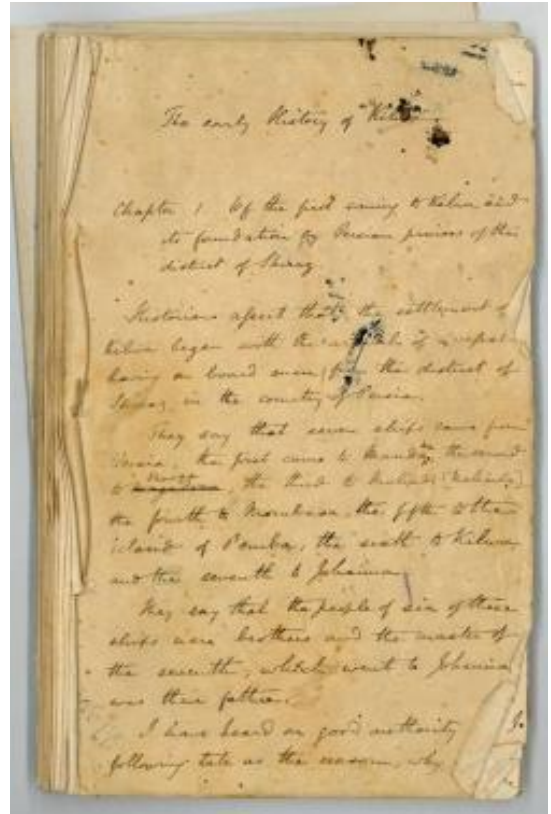 The early History of Kilwa
Chapter 1 Of the first coming to Kilwa and
its foundation by Persian princes of the
district of Shiraz
Historians assert that the settlement of
Kilwa began with the of a
having on board men from the district of
Shiraz in the country of Persia.
They say that seven ships came from
Persia, the first came to the second
to the third to
the fourth to Mombasa, the fifth to the
island of Pemba, the sixth to Kilwa
and the seventh to Johanna
They say that the people of six of these
ships were brothers and the master of
the seventh, which went to Johanna
was their father.
I have heard on good authority
following tale as the reason, why